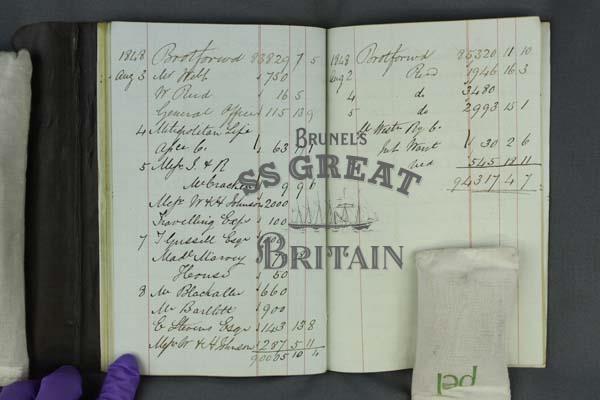 1848 Brotforwd 83829 7 5
Aug 3 Mr Wolf 750
W Reid 16 5
General Office 115 13 9
4 Metropolitan Life
Assce C. 63
5 Messrs J. & R
McCracken 9 9 1
Messrs W & H Johnson 2000
Travelling Exps 100
7 T Gussill Esqr
Madl
House 50
8 Mr Blackaller 660
Mr Bartlett 900
C Stevens Esqr 1143 13 8
Messrs W & H Johnson 287 5 11
90005 10 4
1848 Brotforwd 85320 11 10
Aug 2 Reid 1946 16 3
4 do 3480
5 do 2993 15 1
Gt Westn Ry C.
30 2 6
545 18 11
94317 4 7
BRUNEL'S
SS GREAT
BRITAIN
pel